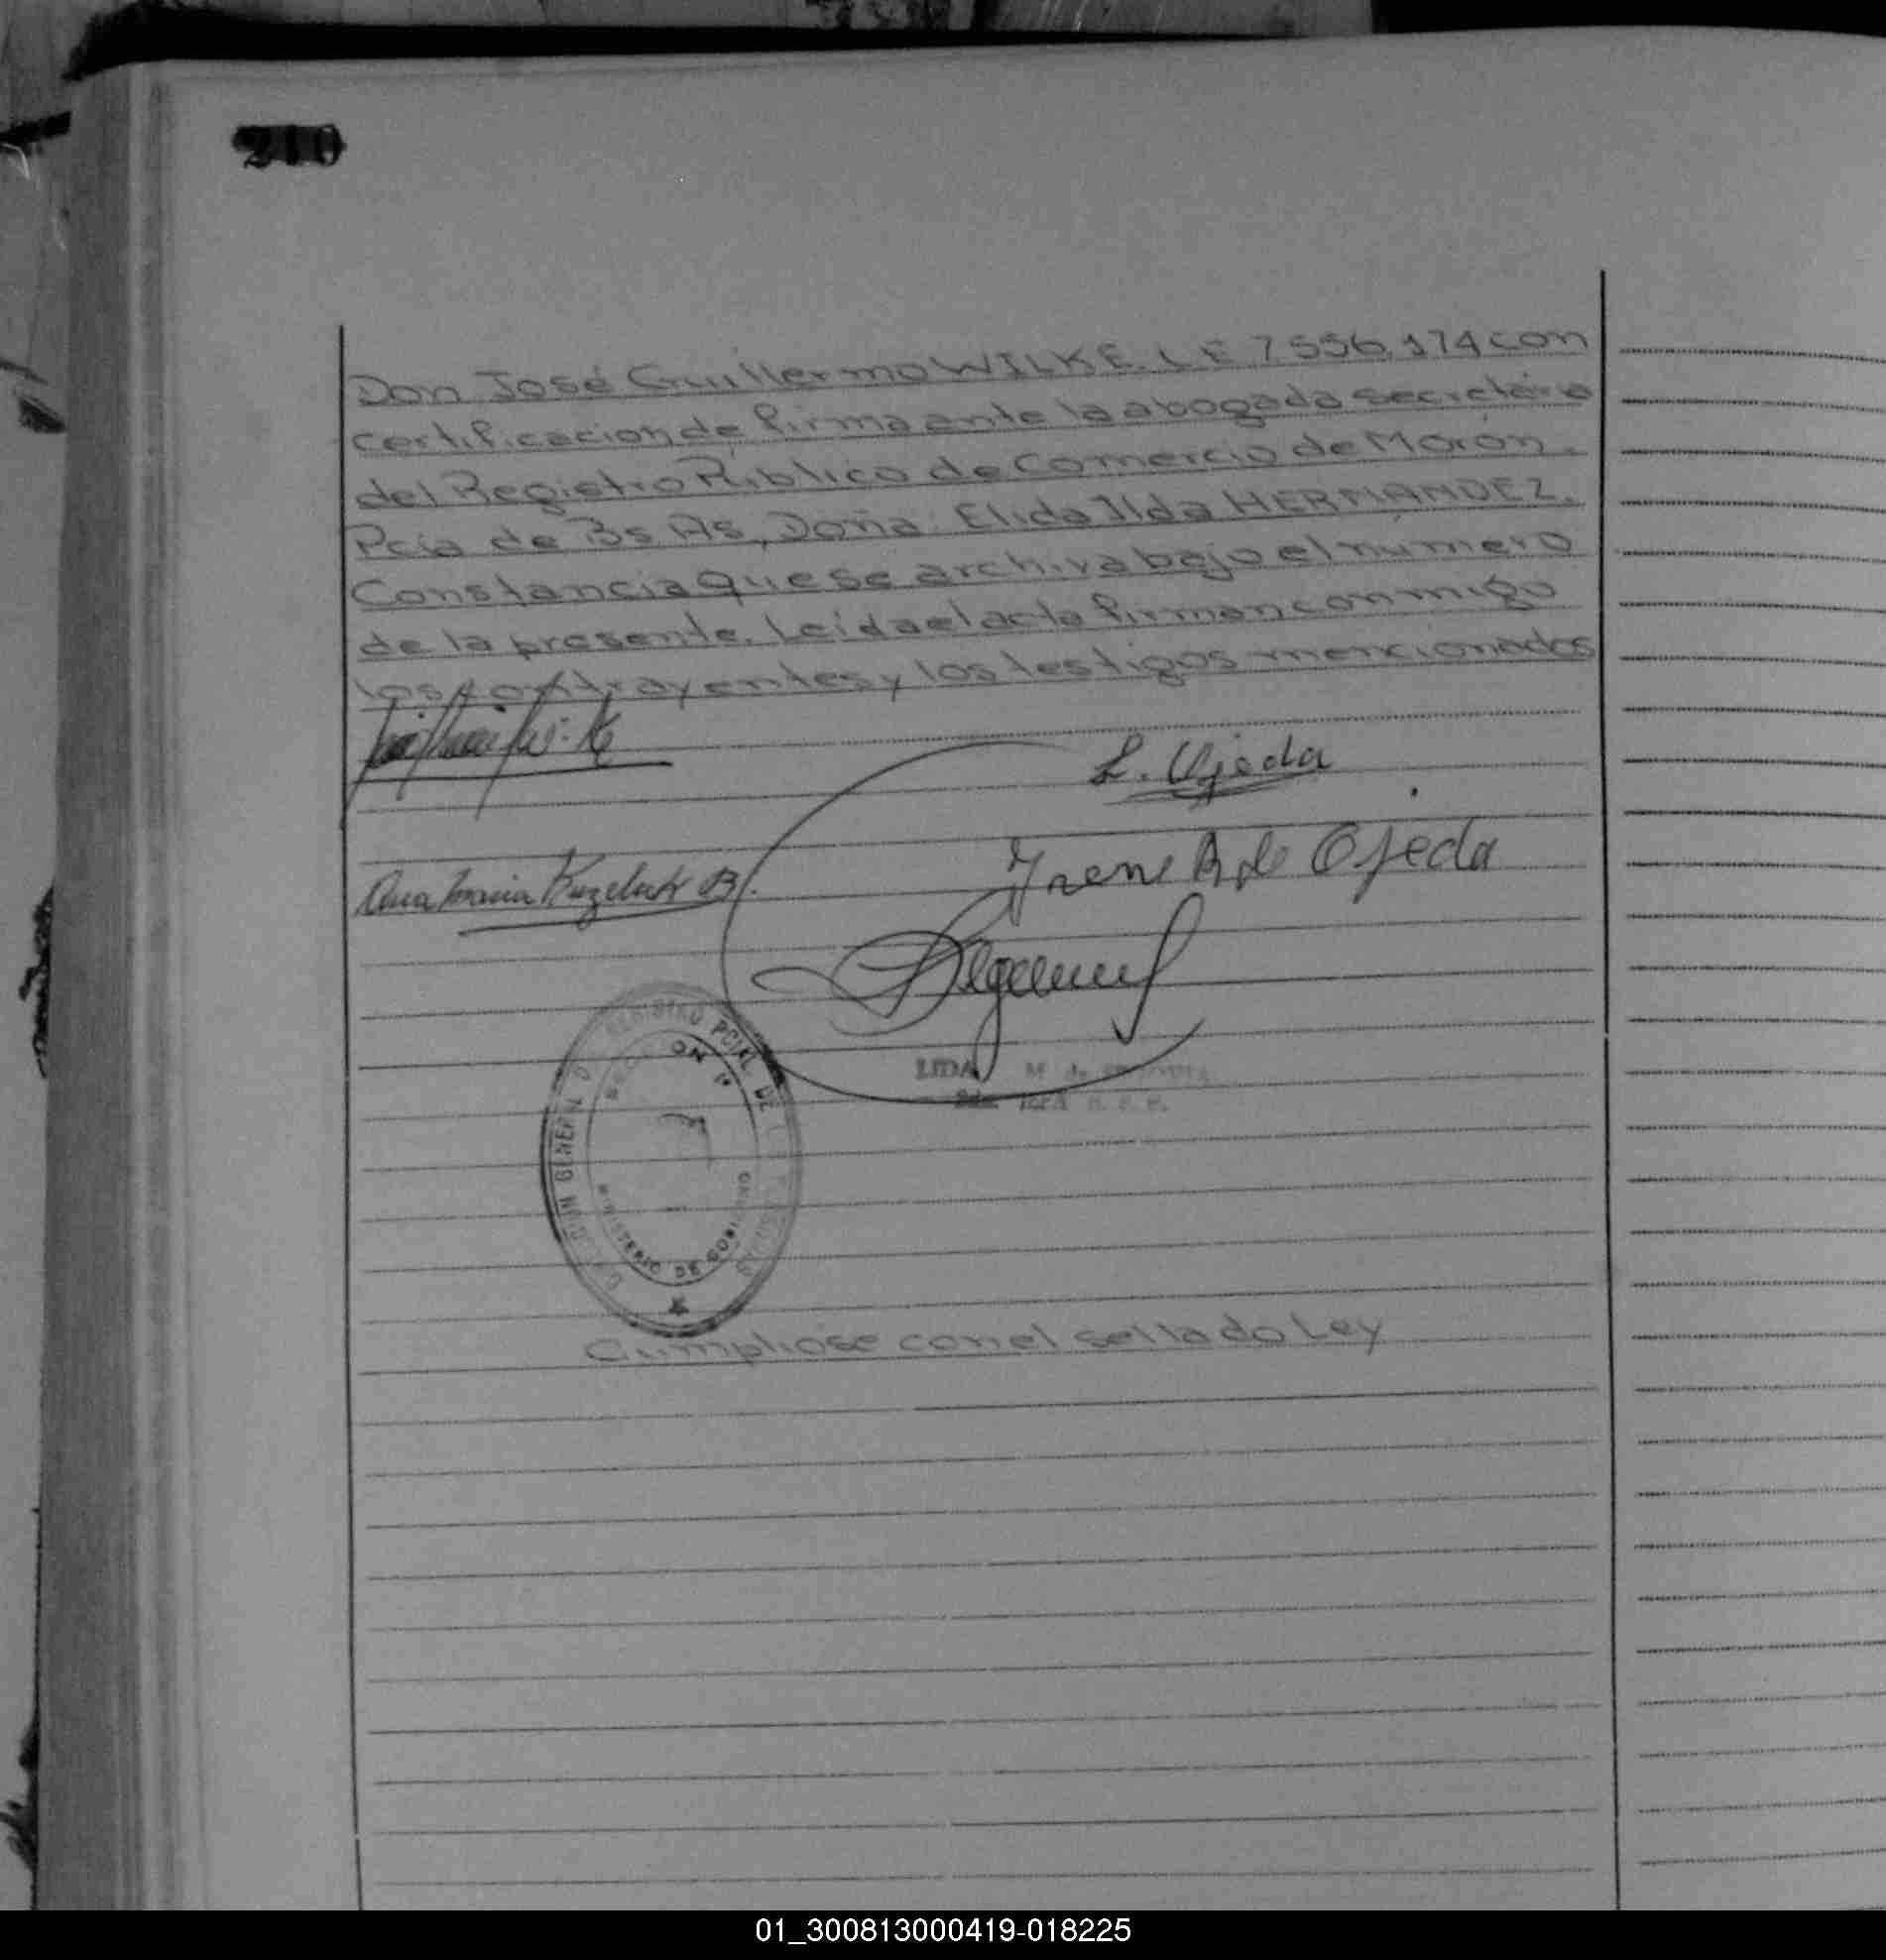 210
Don José Guillermo WILKE. L E 7 556.174 con
certificacion de firma ante la abogada secretaria
del Registro Público de Comercio de Morón.
Pcia de Bs As, Doña. Elida Ilda HERNANDEZ.
Constancia que se archiva bajo el número
de la presente. Leida el acta firman conmigo
los contrayentes y los testigos mencionados
L. Ojeda
Irene B de Ojeda
Ana Maria
LIDA M de
REGISTRO PCIAL DE
MINISTERIO DE GOBIERNO
Cumpliose con el sellado Ley
01_300813000419-018225